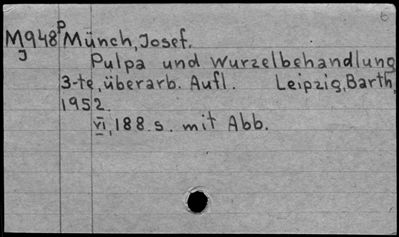 6
M948 P Münch, Josef.
J
Pulpa und Wurzelbehandlung
3-te, überarb. Aufl. Leipzig, Barth,
1952.
VI, 188 s. mit Abb.